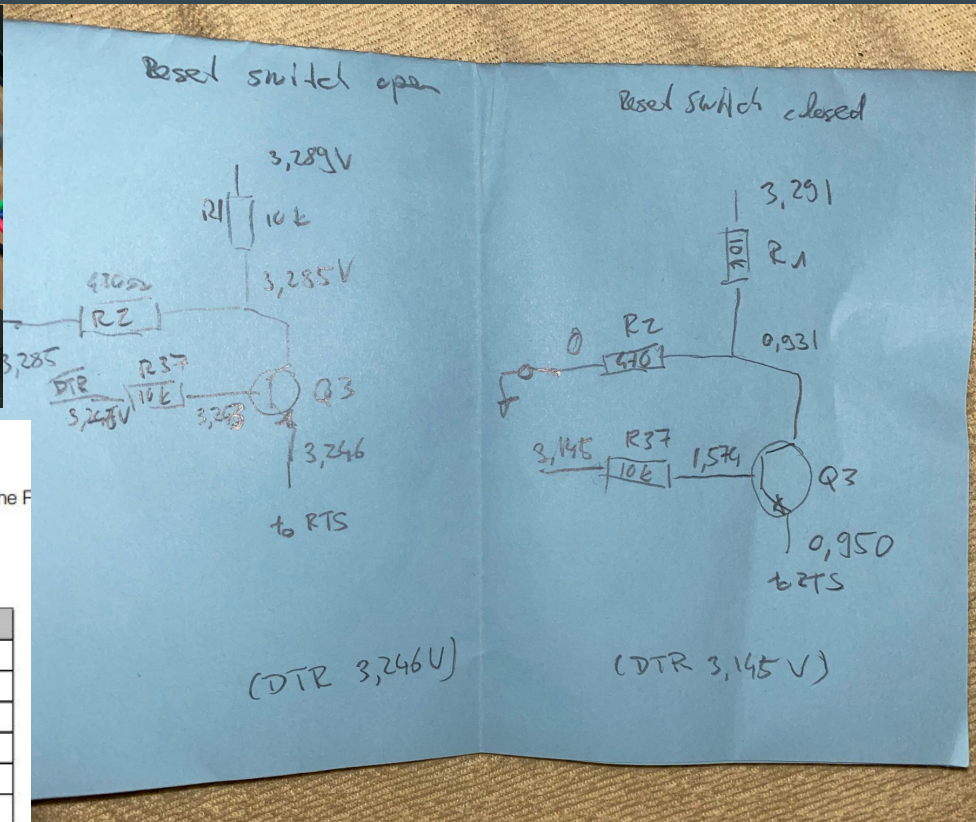 Reset switch open
3,289V
R1 10k
3,285V
R2
3,285
DTR
R37
10k
Q3
3,246
to RTS
(DTR 3,246V)
Reset switch closed
3,291
10k R1
0
R2
470
0,931
3,145
R37
10k
1,574
Q3
0,950
to RTS
(DTR 3,145 V)
he F